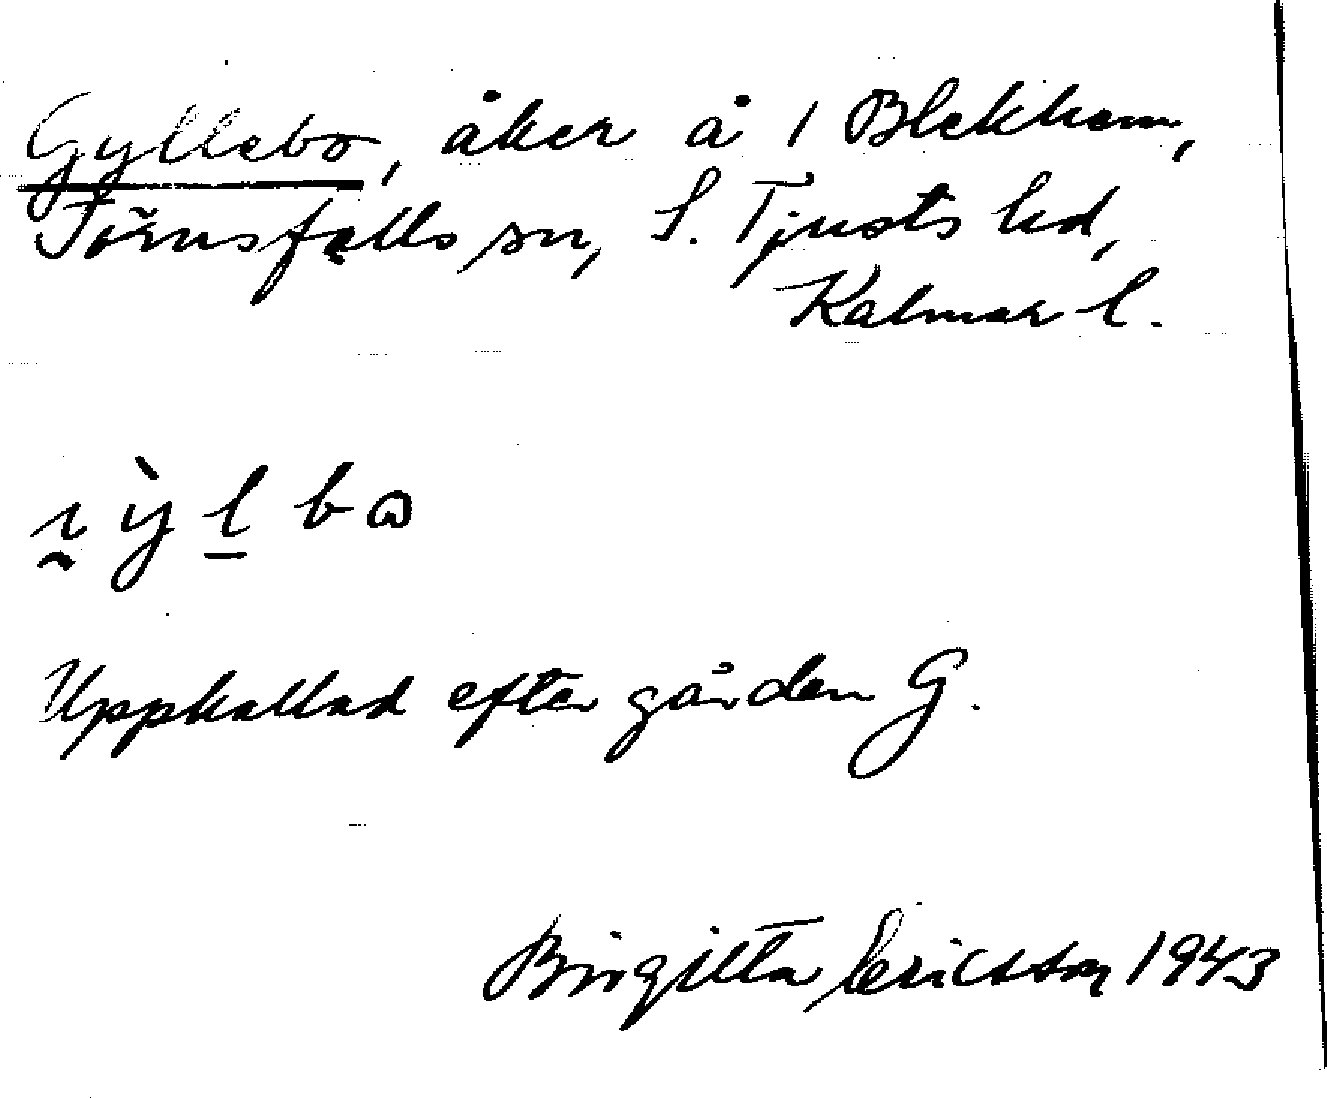 Gyllebo, åker å 1 Blekhem,
Törnsfalls sn, S. Tjusts hd,
Kalmar l.
ı̯ỳḻbɷ
Uppkallad efter gården G.
Birgitta Ericsson 1943